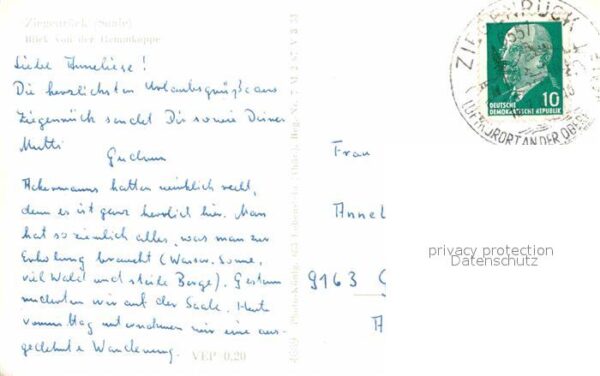 Ziegenrück (Saale)
Blick von der Hemmkoppe
Liebe Anneliese!
Die herzlichsten Urlaubsgrüße aus
Ziegenrück sendet Dir sowie Deiner
Mutti
Gudrun
Ackermanns hatten wirklich recht,
denn es ist ganz herrlich hier. Man
hat so ziemlich alles, was man zur
Erholung braucht (Wasser, Sonne,
viel Wald und steile Berge). Gestern
ruderten wir auf der Saale. Heute
vormittag unternahmen wir eine aus-
gedehnte Wanderung.
VEP 0,20
ZIEGENRÜCK
LUFTKURORT AN DER OBER
10
DEUTSCHE
DEMOKRATISCHE REPUBLIK
Frau
Annel
9163
privacy protection
Datenschutz